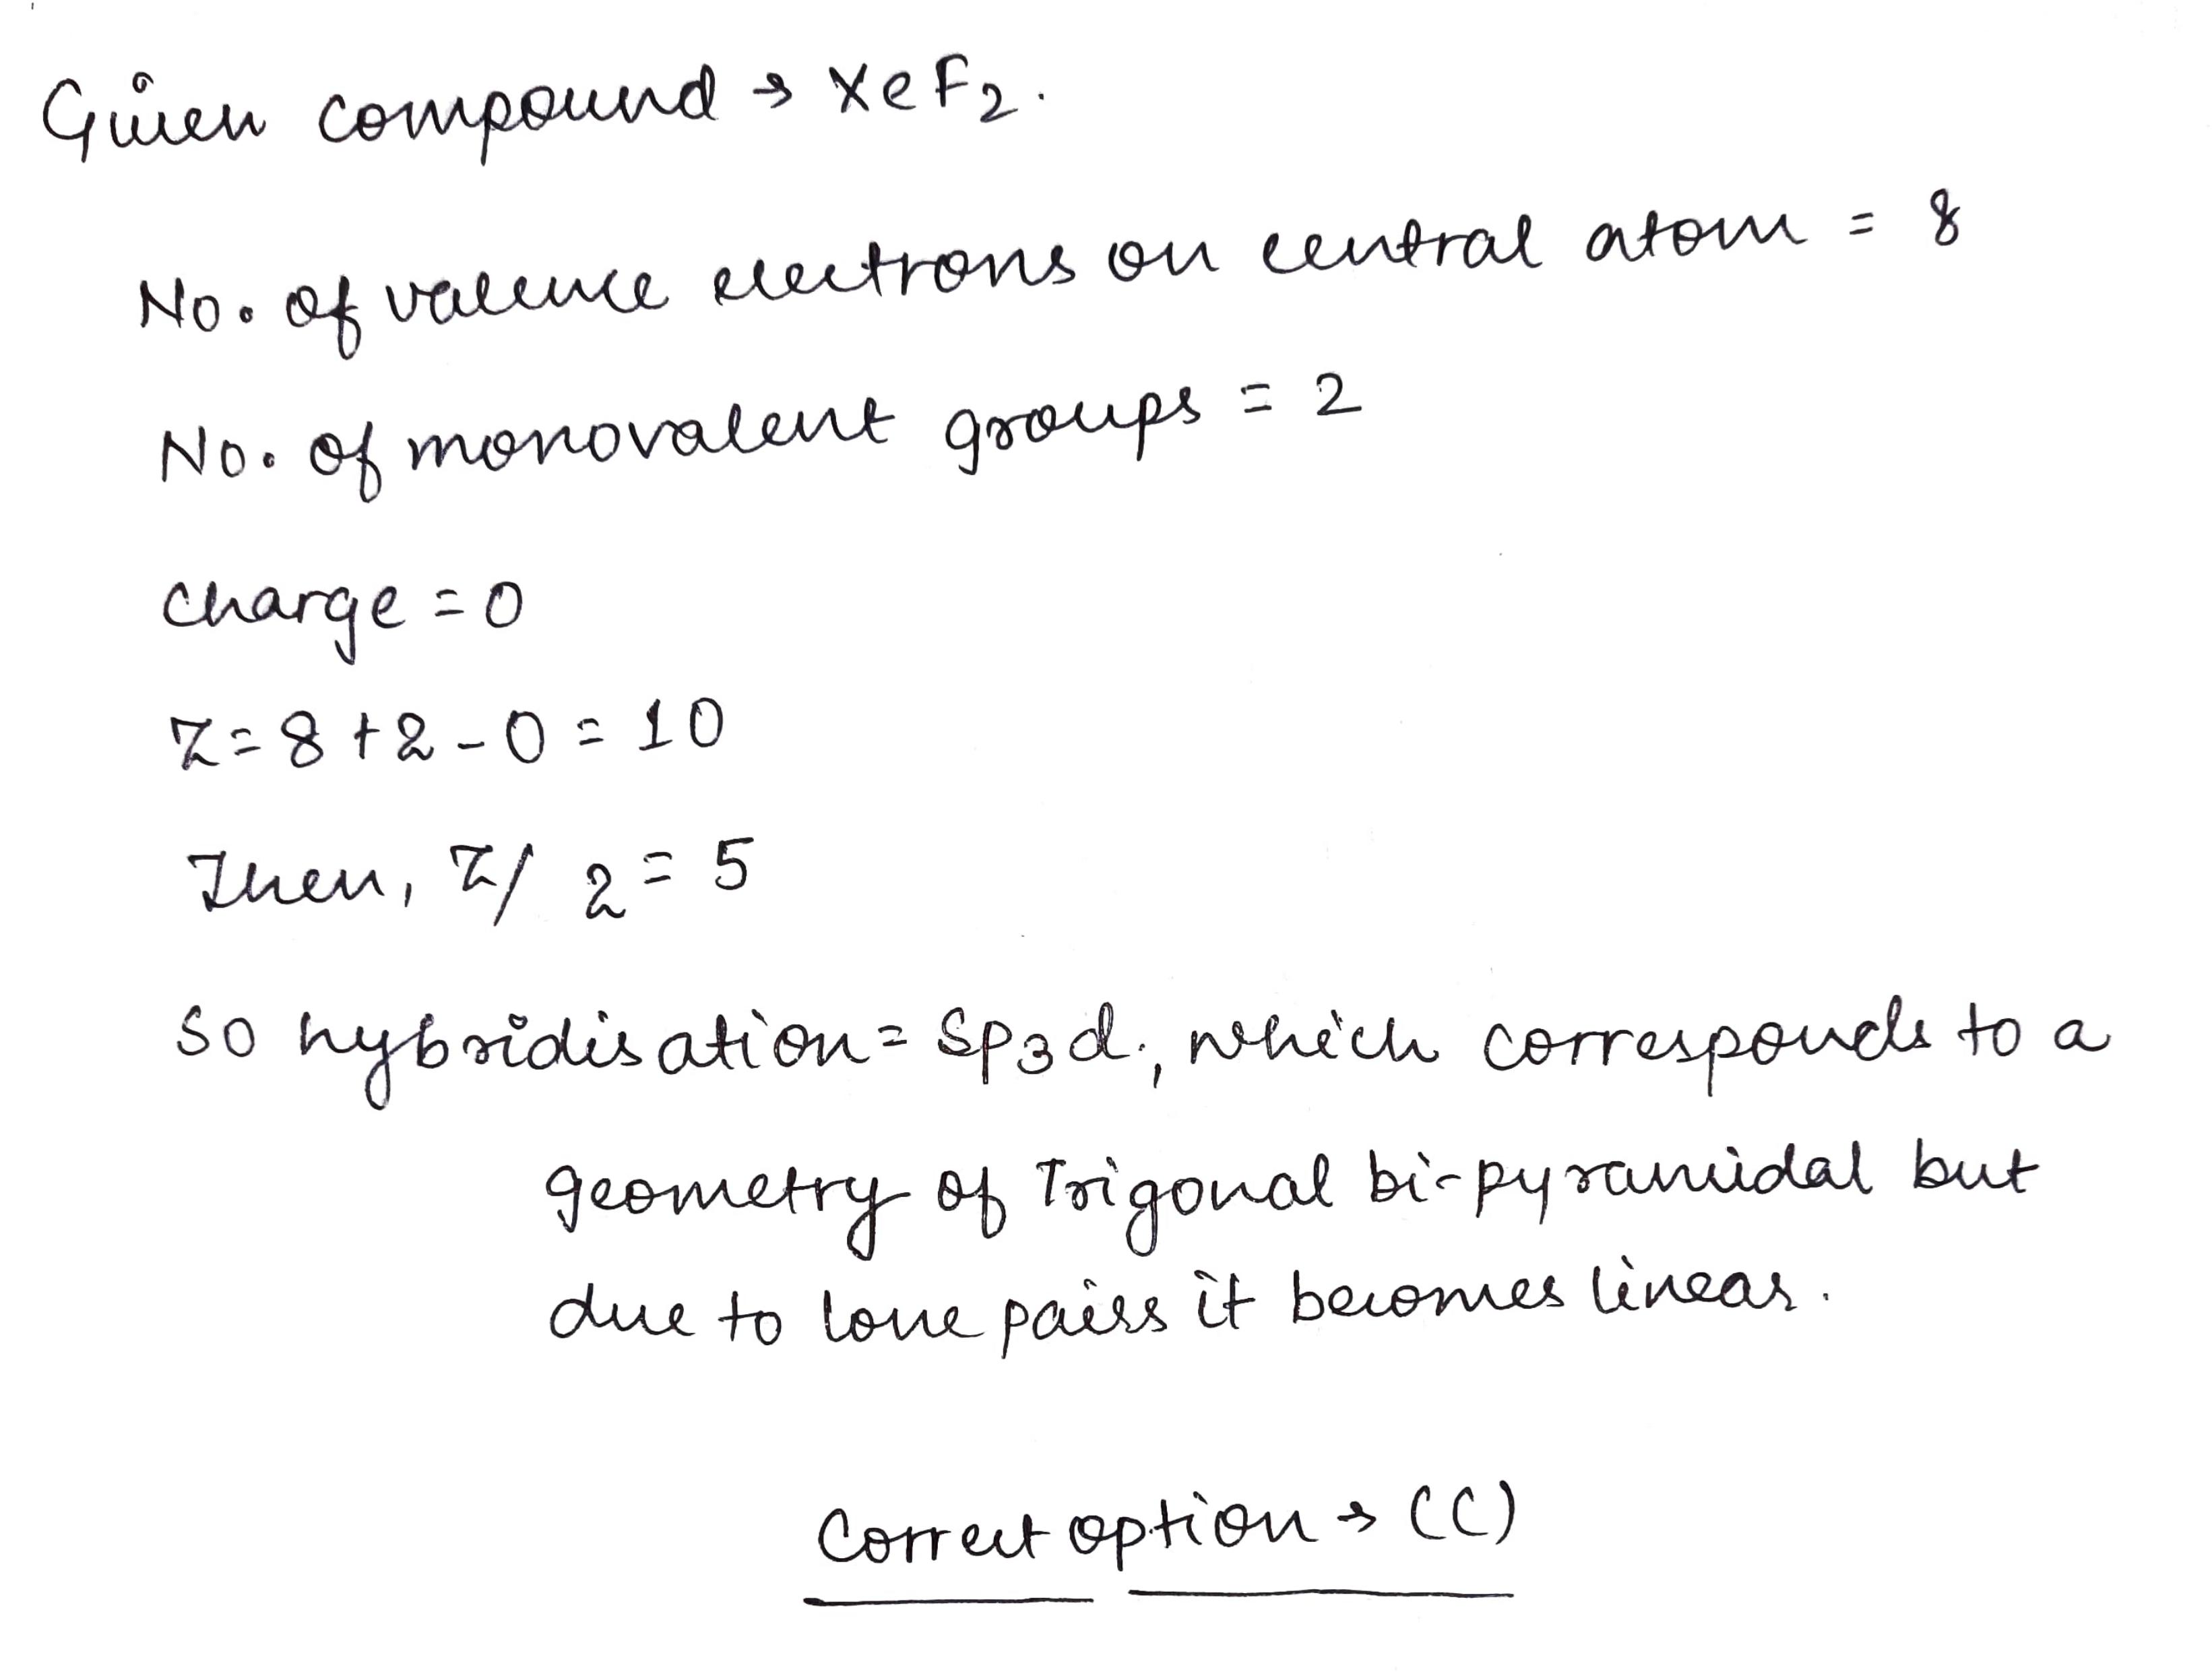 Given compound → XeF2.
No. of valence electrons on central atom = 8
No. of monovalent groups = 2
charge = 0
Z = 8 + 2 - 0 = 10
Then, Z/2 = 5
so hybridisation = Sp3d, which corresponds to a
geometry of Trigonal bi-pyramidal but
due to lone pairs it becomes linear.
Correct option → (C)